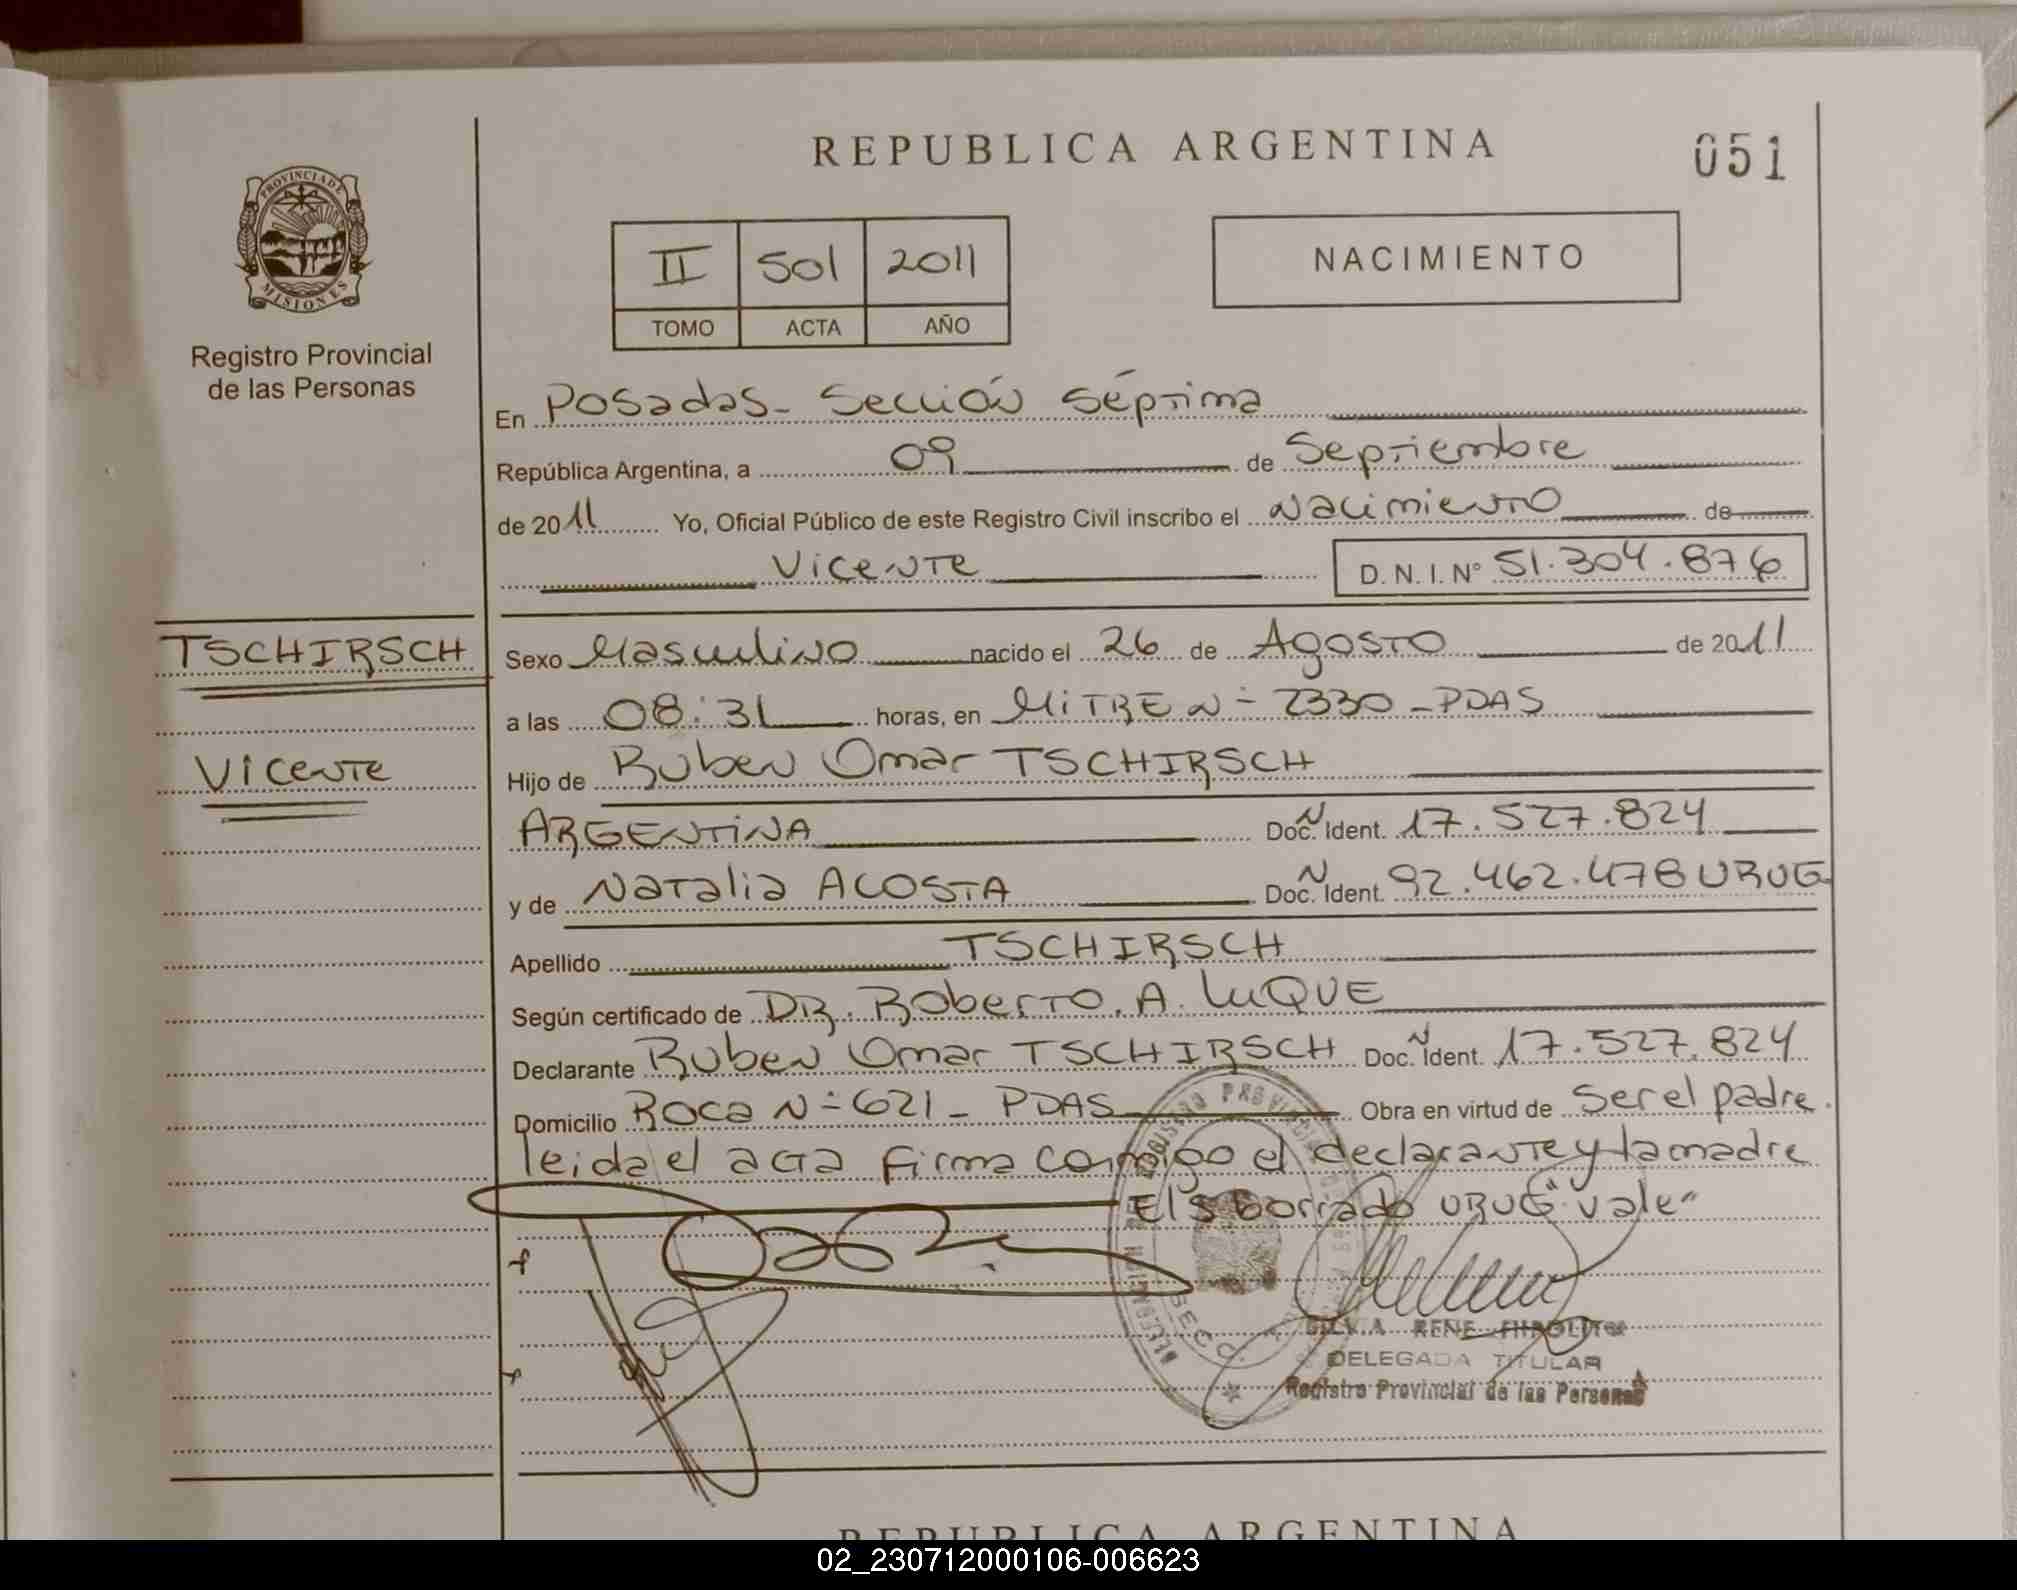 REPUBLICA ARGENTINA
051
PROVINCIA DE
MISIONES
Registro Provincial
de las Personas
II 501 2011
TOMO ACTA AÑO
NACIMIENTO
En Posadas - Sección Séptima
República Argentina, a 09 de Septiembre
de 2011 Yo, Oficial Público de este Registro Civil inscribo el Nacimiento de
Vicente D.N.I. N° 51.304.876
TSCHIRSCH
Vicente
Sexo Masculino nacido el 26 de Agosto de 2011
a las 08:31 horas, en MITRE N- 2330 - PDAS
Hijo de Ruben Omar TSCHIRSCH
ARGENTINA Doc. N Ident. 17.527.824
y de Natalia ACOSTA Doc. N Ident. 92.462.478 URUG
Apellido TSCHIRSCH
Según certificado de DR. Roberto. A. LUQUE
Declarante Ruben Omar TSCHIRSCH Doc. N Ident. 17.527.824
Domicilio Roca N- 621 - PDAS Obra en virtud de ser el padre.
leida el acta firma conmigo el declarante y la madre
El s borrado URUG "vale"
SILVIA RENE
DELEGADA TITULAR
Registro Provincial de las Personas
REPUBLICA ARGENTINA
02_230712000106-006623